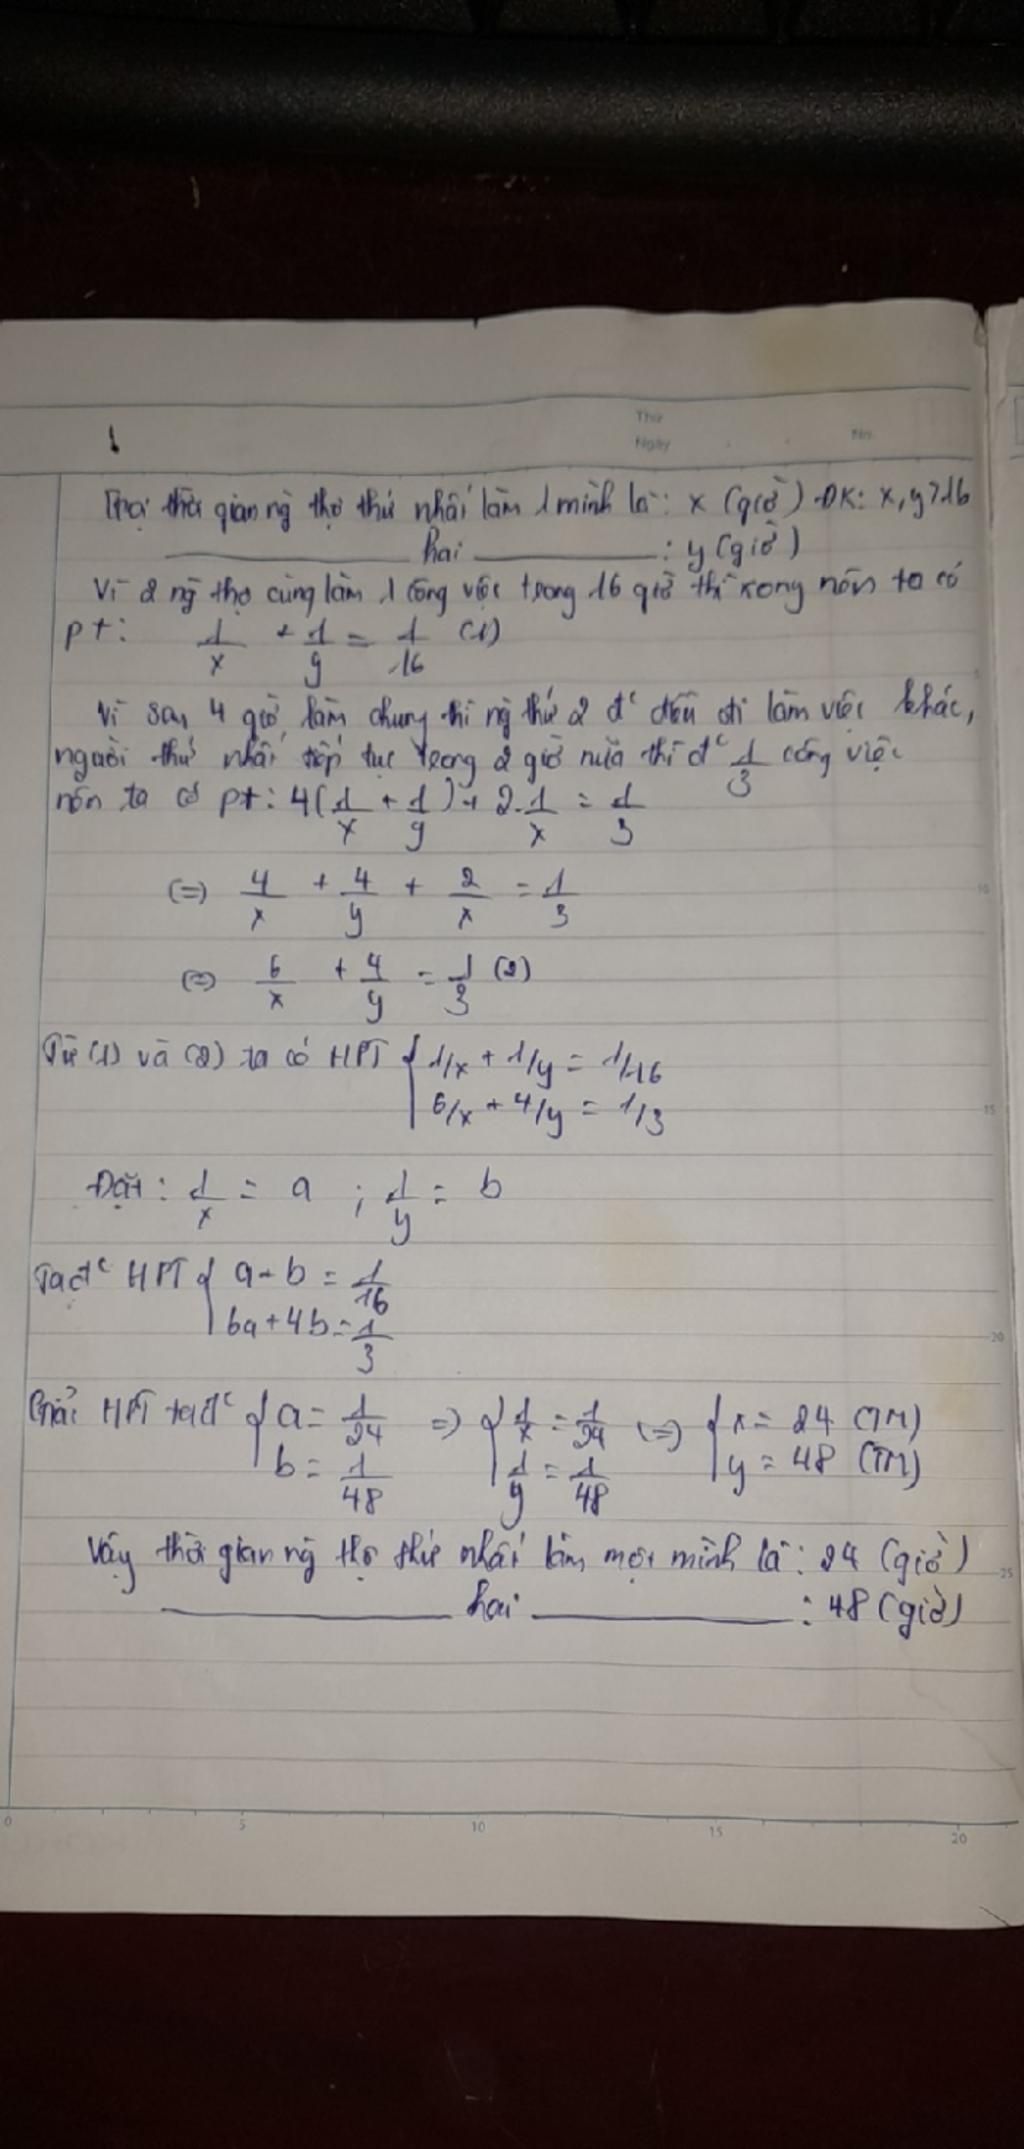 Thứ
Ngày No.
Gọi thời gian ng thợ thứ nhất làm 1 mình là: x (giờ) ĐK: x, y > 16
hai : y (giờ)
Vì 2 ng thợ cùng làm 1 công việc trong 16 giờ thì xong nên ta có
pt: 1/x + 1/y = 1/16 (1)
Vì sau 4 giờ làm chung thì ng thứ 2 đc đi làm việc khác,
người thứ nhất tiếp tục trong 2 giờ nữa thì đc 1/3 công việc
nên ta có pt: 4(1/x + 1/y) + 2.1/x = 1/3
(=) 4/x + 4/y + 2/x = 1/3
(=) 6/x + 4/y = 1/3 (2)
Từ (1) và (2) ta có HPT { 1/x + 1/y = 1/16
6/x + 4/y = 1/3
Đặt: 1/x = a ; 1/y = b
Ta đc HPT { a + b = 1/16
6a + 4b = 1/3
Giải HPT ta đc { a = 1/24 => { 1/x = 1/24 (=) { x = 24 (TM)
b = 1/48 1/y = 1/48 y = 48 (TM)
Vậy thời gian ng thợ thứ nhất làm một mình là: 24 (giờ)
hai : 48 (giờ)
0 5 10 15 20
10
15
20
25